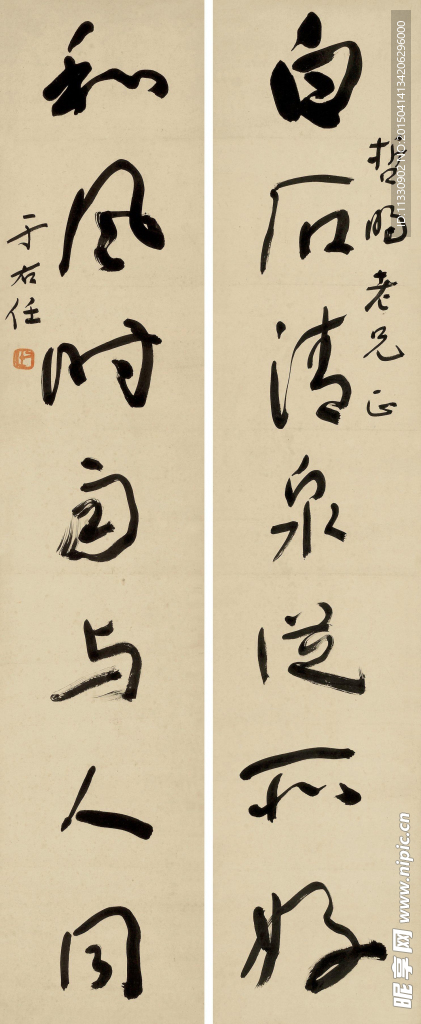 白石清泉从所好
哲明老兄正
和风时雨与人同
于右任
ID:11330902 NO:20150414134206296000
昵享网 www.nipic.cn